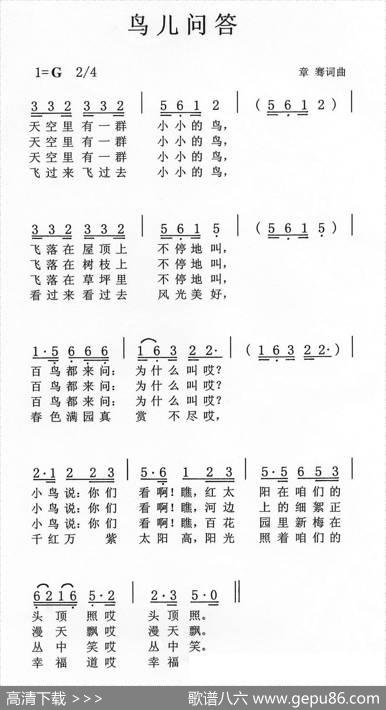 鸟儿问答
1=G 2/4 章 骞词曲
3 3 2 3 3 2 | 5 6 1 2 | ( 5 6 1 2 )
天空里有一群 小小的鸟,
天空里有一群 小小的鸟,
天空里有一群 小小的鸟,
飞过来飞过去 小小的鸟,
3 3 2 3 3 2 | 5 6 1 5 | ( 5 6 1 5 )
飞落在屋顶上 不停地叫,
飞落在树枝上 不停地叫,
飞落在草坪里 不停地叫,
看过来看过去 风光美好,
1·5 6 6 6 | 1 6 3 2 2· | ( 1 6 3 2 2· )
百鸟都来问: 为什么叫哎?
百鸟都来问: 为什么叫哎?
百鸟都来问: 为什么叫哎?
春色满园真 赏 不尽哎,
2·1 2 2 3 | 5·6 1 2 3 | 5·5 6 5 3
小鸟说:你们 看啊!瞧,红太 阳在咱们的
小鸟说:你们 看啊!瞧,河边 上的细絮正
小鸟说:你们 看啊!瞧,百花 园里新梅在
千红万 紫 太阳高,阳光 照着咱们的
6 2 1 6 5· 2 | 2· 3 5· 0 ‖
头 顶 照 哎 头 顶 照。
漫 天 飘 哎 漫 天 飘。
丛 中 笑 哎 丛 中 笑。
幸 福 道 哎 幸 福
高清下载 >>> 歌谱八六 www.gepu86.com